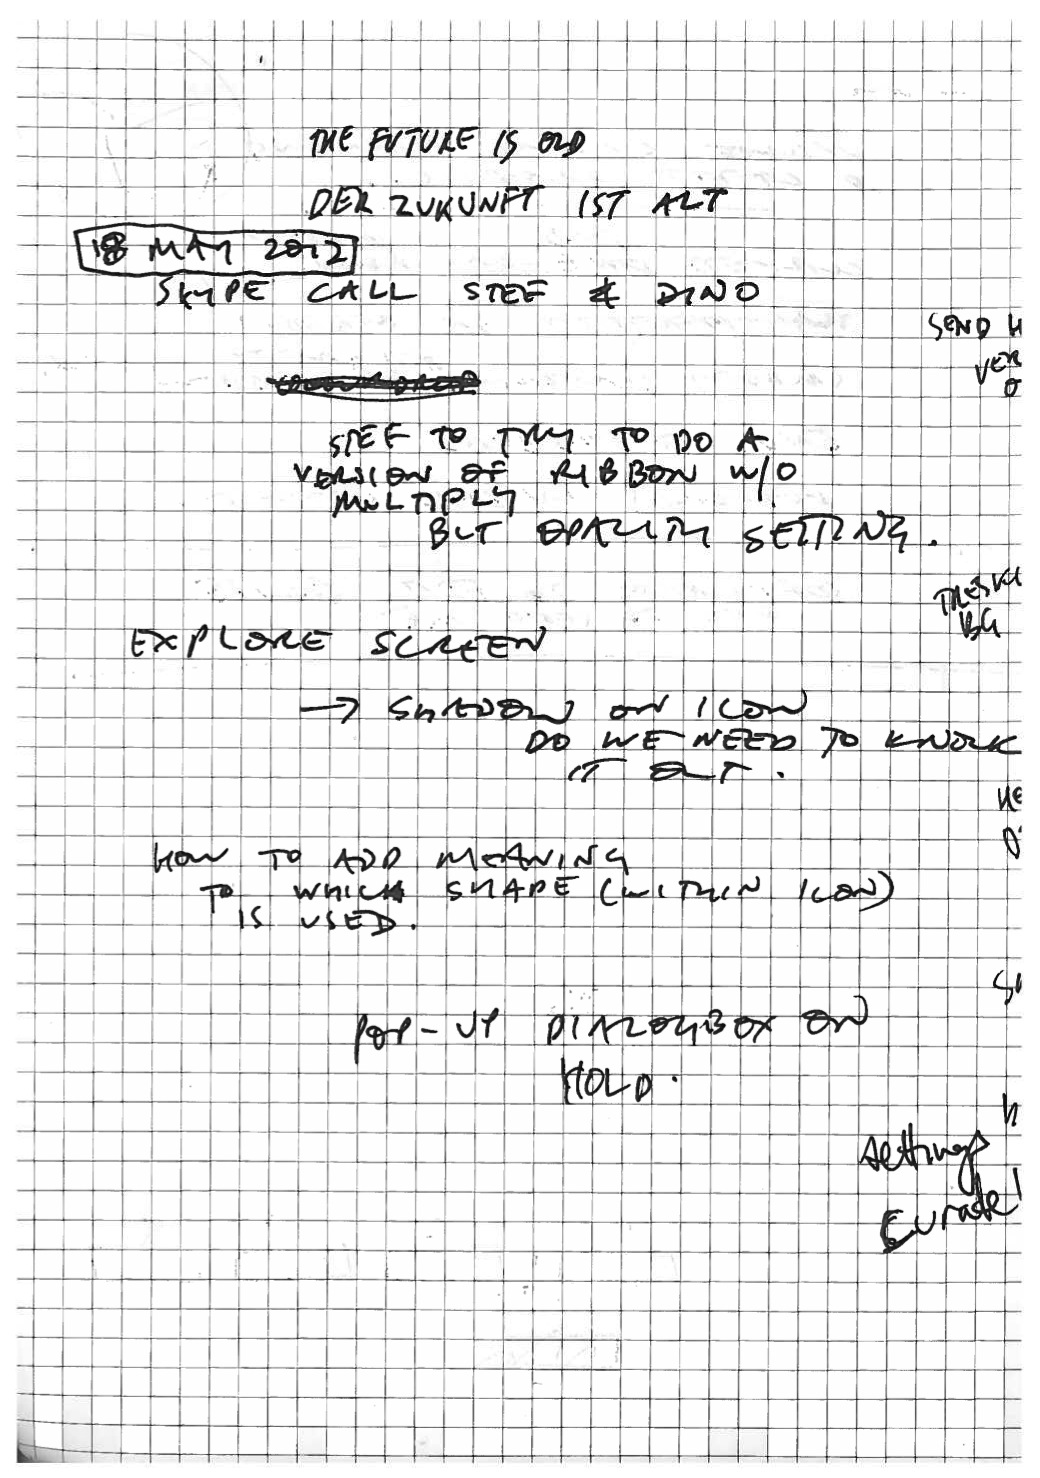 THE FUTURE IS OLD
DER ZUKUNFT IST ALT
18 MAY 2012
SKYPE CALL STEF & DINO
SEND
VER
STEF TO TRY TO DO A
VERSION OF RIBBON W/O
MULTIPLY
BUT OPACITY SETTING.
BG
EXPLORE SCREEN
→ SHADOW ON ICON
DO WE NEED TO KNOCK
IT OUT.
HOW TO ADD MEANING
TO WHICH SHAPE (WITHIN ICON)
IS USED.
POP-UP DIALOGBOX ON
HOLD.
settings